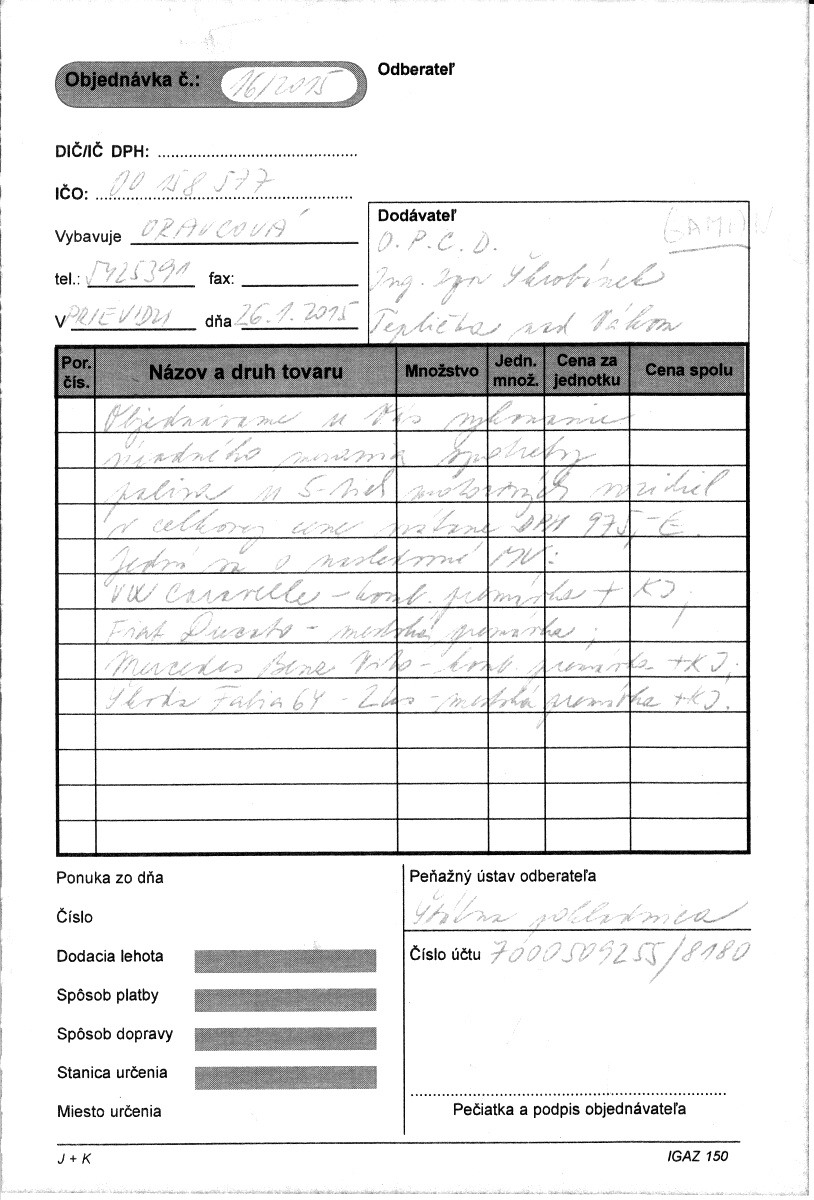 Objednávka č.: 16/2015
Odberateľ
DIČ/IČ DPH:
IČO: 00 158 577
Vybavuje ORAVCOVÁ
tel.: 5425391 fax:
V PRIEVIDZI dňa 26.1.2015
Dodávateľ
O.P.C.D.
Ing. Igor Škrobánek
Teplička nad Váhom
Por. čís. Názov a druh tovaru Množstvo Jedn. množ. Cena za jednotku Cena spolu
Objednávame u Vás vykonanie
merania spotreby
paliva u 5-tich motorových vozidiel
v celkovej cene vrátane DPH 975,-€.
Jedná sa o nasledovné MV:
VW Caravelle - komb. premávka + KJ;
Fiat Ducato - mestská premávka;
Mercedes Benz Vito - komb. premávka + KJ;
Škoda Fabia 6Y - 2 ks - mestská premávka + KJ.
Ponuka zo dňa
Číslo
Dodacia lehota
Spôsob platby
Spôsob dopravy
Stanica určenia
Miesto určenia
Peňažný ústav odberateľa
Štátna pokladnica
Číslo účtu 7000509255/8180
Pečiatka a podpis objednávateľa
J + K
IGAZ 150